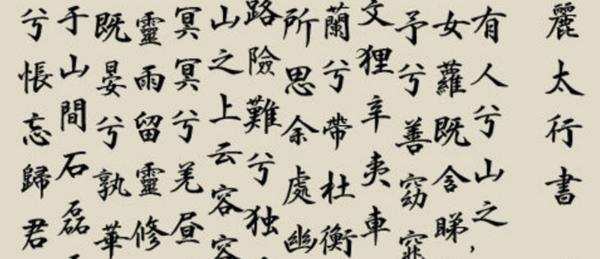 麗太行書
有人兮山之
女蘿既含睇
予兮善窈窕
文狸辛夷車
蘭兮帶杜衡
所思余處幽
路險難兮独
山之上云容容
冥冥兮羌昼
靈雨留靈修
既晏兮孰華
于山間石磊
兮悵忘歸君